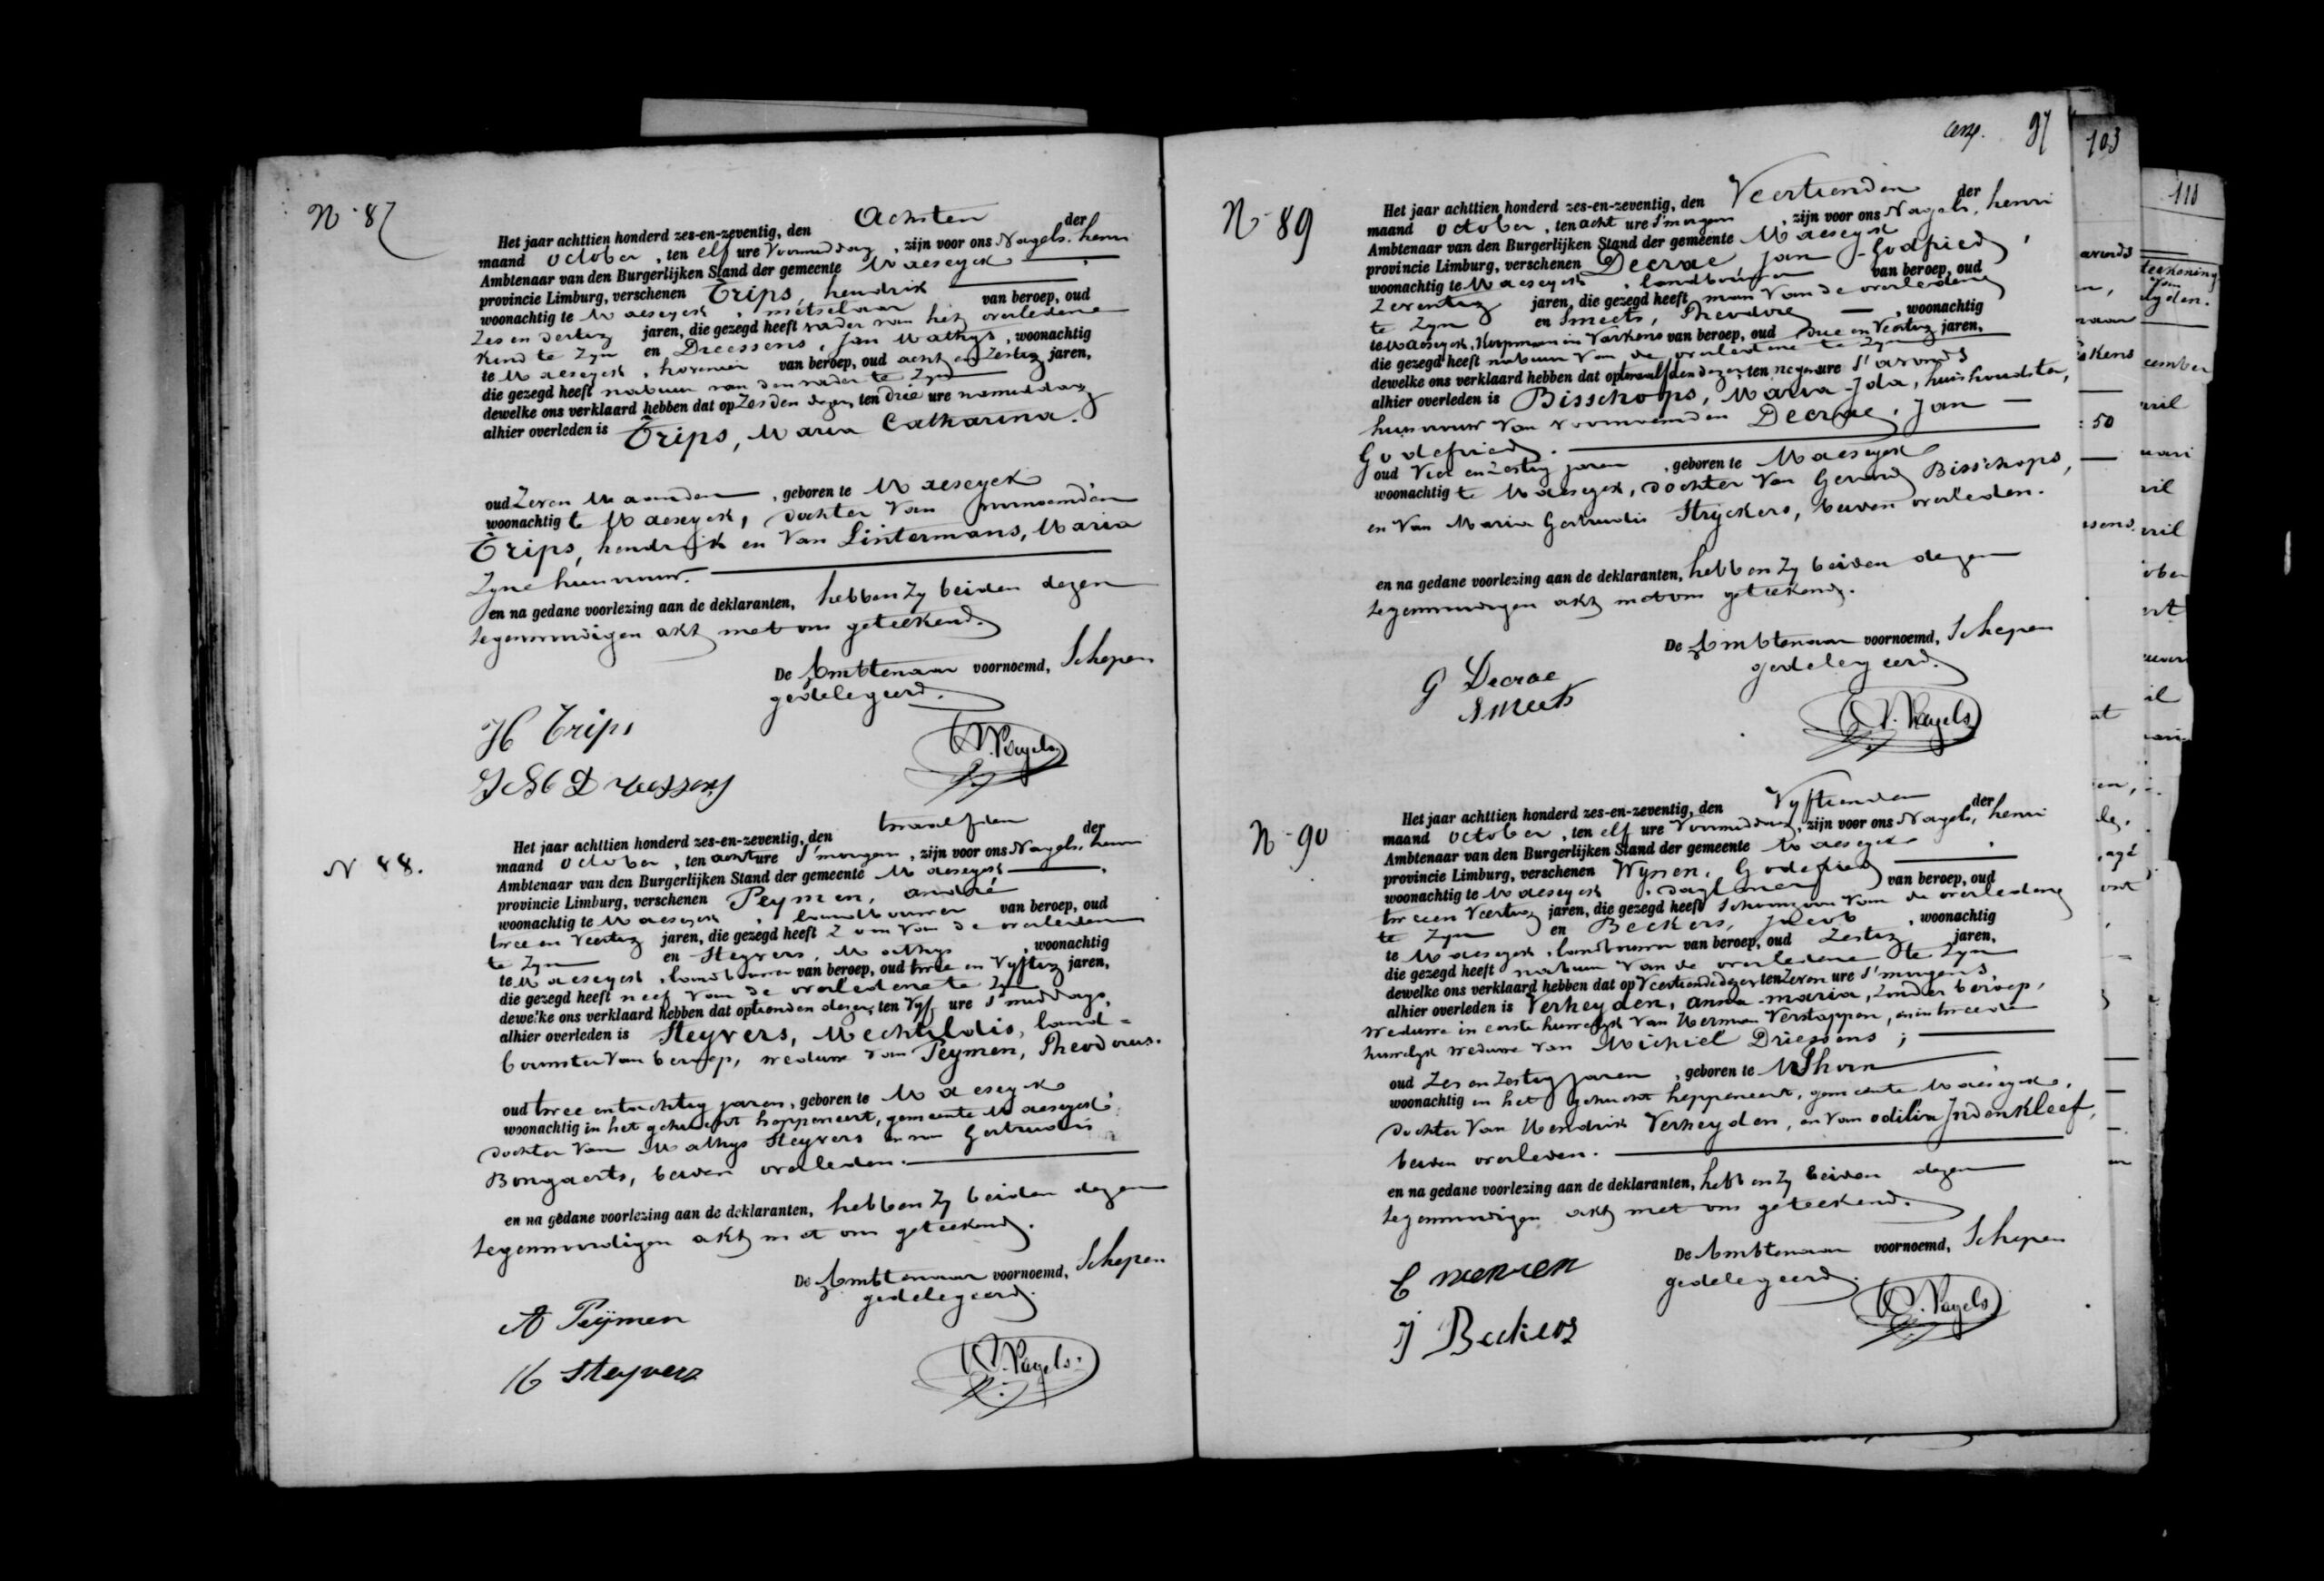 N° 87
Het jaar achttien honderd zes-en-zeventig, den Achsten der
maand October, ten elf ure Voormiddag, zijn voor ons Nagels, henri
Ambtenaar van den Burgerlijken Stand der gemeente Maeseyck
provincie Limburg, verschenen Trips, hendrik
woonachtig te Maeseyck, metselaar van beroep, oud
Zes en dertig jaren, die gezegd heeft vader van het overledene
Kind te Zyn en Dreessens, Jan Mathys, woonachtig
te Maeseyck, hovenier van beroep, oud acht en Zestig jaren,
die gezegd heeft nabuur van den vader te Zyn
dewelke ons verklaard hebben dat op Zesden dezer, ten drie ure namiddag
alhier overleden is Trips, Maria Catharina.
oud Zeven Maanden, geboren te Maeseyck
woonachtig te Maeseyck, dochter van voornoemden
Trips, hendrik en Van Lintermans, Maria
Zyne huisvrouw.
en na gedane voorlezing aan de deklaranten, hebben Zy beiden dezen
tegenwoordigen akt met ons geteekend.
De Ambtenaar voornoemd, Schepen
gedelegeerd.
H Trips
J M Dreessens
H. Nagels
N 88.
Het jaar achttien honderd zes-en-zeventig, den twaalfden der
maand October, ten acht ure s'morgens, zijn voor ons Nagels, henri
Ambtenaar van den Burgerlijken Stand der gemeente Maeseyck
provincie Limburg, verschenen Peymen, André
woonachtig te Maeseyck, landbouwer van beroep, oud
twee en Veertig jaren, die gezegd heeft Zoon van de overledene
te Zyn en Steyvers, Mathys, woonachtig
te Maeseyck, landbouwer van beroep, oud twee en Vyftig jaren,
die gezegd heeft neef van de overledene te Zyn
dewelke ons verklaard hebben dat op tienden dezer, ten Vyf ure s'middags,
alhier overleden is Steyvers, Mechtildis, land-
bouwster van beroep, weduwe van Peymen, Theodorus.
oud twee en tachtig jaren, geboren te Maeseyck
woonachtig in het gehucht heppeneert, gemeente Maeseyck,
dochter van Mathys Steyvers en van Gertrudis
Bongaerts, beiden overleden.
en na gedane voorlezing aan de deklaranten, hebben Zy beiden dezen
tegenwoordigen akt met ons geteekend.
De Ambtenaar voornoemd, Schepen
gedelegeerd.
A Peÿmen
M Steyvers
H. Nagels
97
N° 89
Het jaar achttien honderd zes-en-zeventig, den Veertienden der
maand October, ten acht ure s'morgens, zijn voor ons Nagels, henri
Ambtenaar van den Burgerlijken Stand der gemeente Maeseyck
provincie Limburg, verschenen Decrae Jan-Godfried,
woonachtig te Maeseyck, landbouwer van beroep, oud
Zeventig jaren, die gezegd heeft man van de overledene
te Zyn en Smeets, Theodore, woonachtig
te Maeseyck, Koopman in Varkens van beroep, oud drie en Veertig jaren,
die gezegd heeft nabuur van de overledene te Zyn
dewelke ons verklaard hebben dat op twaalfden dezer, ten negen ure s'avonds
alhier overleden is Bisschops, Maria-Ida, huishoudster,
huisvrouw van voornoemden Decrae, Jan
Godefried.
oud Vier en Zestig jaren, geboren te Maeseyck
woonachtig te Maeseyck, dochter van Gerard Bisschops,
en van Maria Gertrudis Stryckers, beiden overleden.
en na gedane voorlezing aan de deklaranten, hebben Zy beiden dezen
tegenwoordigen akt met ons geteekend.
De Ambtenaar voornoemd, Schepen
gedelegeerd.
G Decrae
Smeets
H. Nagels
N° 90
Het jaar achttien honderd zes-en-zeventig, den Vyftienden der
maand October, ten elf ure Voormiddag, zijn voor ons Nagels, henri
Ambtenaar van den Burgerlijken Stand der gemeente Maeseyck,
provincie Limburg, verschenen Wynen, Godefried
woonachtig te Maeseyck, dagloner van beroep, oud
twee en Veertig jaren, die gezegd heeft Schoonzoon van de overledene
te Zyn en Beckers, Jacob, woonachtig
te Maeseyck, landbouwer van beroep, oud Zestig jaren,
die gezegd heeft nabuur van de overledene te Zyn
dewelke ons verklaard hebben dat op Veertiende dezer, ten Zeven ure s'morgens,
alhier overleden is Verheyden, anna-maria, Zonder beroep,
weduwe in eerste huwelyk van Herman Verstappen, en in tweede
huwelyk weduwe van Michiel Driessens;
oud Zes en Zestig jaren, geboren te Thorn
woonachtig in het gehucht heppeneert, gemeente Maeseyck,
dochter van Hendrik Verheyden, en van odilia Indenkleef,
beiden overleden.
en na gedane voorlezing aan de deklaranten, hebben Zy beiden dezen
tegenwoordigen akt met ons geteekend.
De Ambtenaar voornoemd, Schepen
gedelegeerd.
J Beckers
H. Nagels
103
50
110